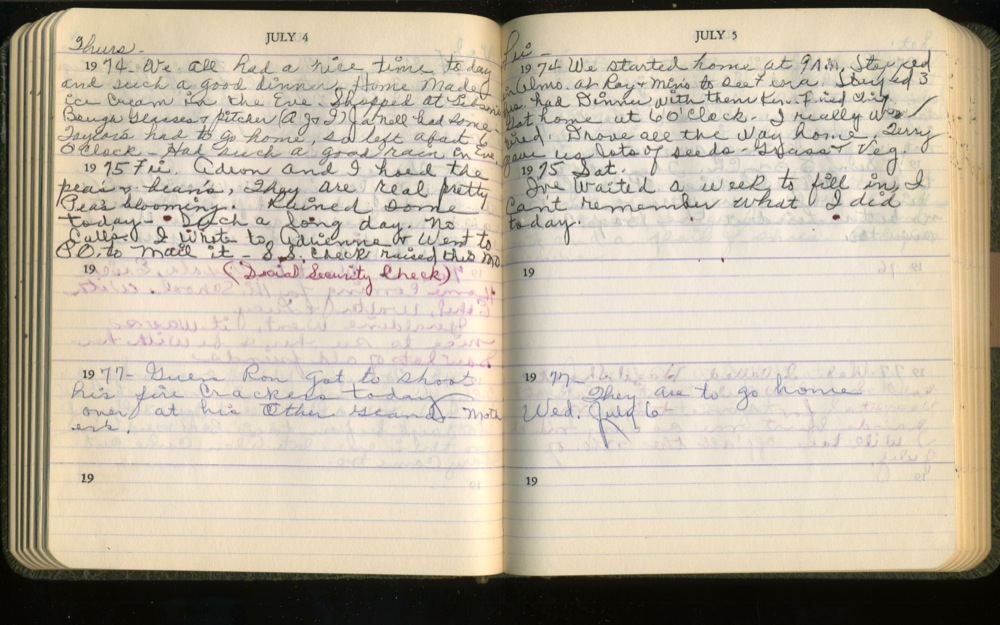 JULY 4
Thurs.
1974. We all had a nice time today
and such a good dinner, Home Made
ice cream in the Eve. Shopped at
glasses & pitcher (A & J) Jn roll had some
Taylors had to go home, so left about 6
O'clock - Had such a good rain in Eve.
1975 Fri. Adron and I hoed the
peas & beans, They are real pretty
Peas blooming. Rained some
today - Such a long day. No
Calls. I wrote to Adrienne & Went to
P.O. to mail it - S.S. check raised this mo.
19 (Social Security Check)
1977 - Guess Ron Got to shoot
his fire crackers today
over at his other Grand - Moth
ers.
19
JULY 5
Fri -
1974 We started home at 9 A.M. Stopped
in Almo. at Ray & Mins to see Stayed 3
hrs. had Dinner with them
Got home at 6 O'Clock. I really was
tired. Drove all the way home. Terry
gave us lots of seeds - Grass & Veg.
1975 Sat.
I've waited a week to fill in, I
can't remember what I did
today.
19
1977 -
They are to go home
Wed. July 6
19